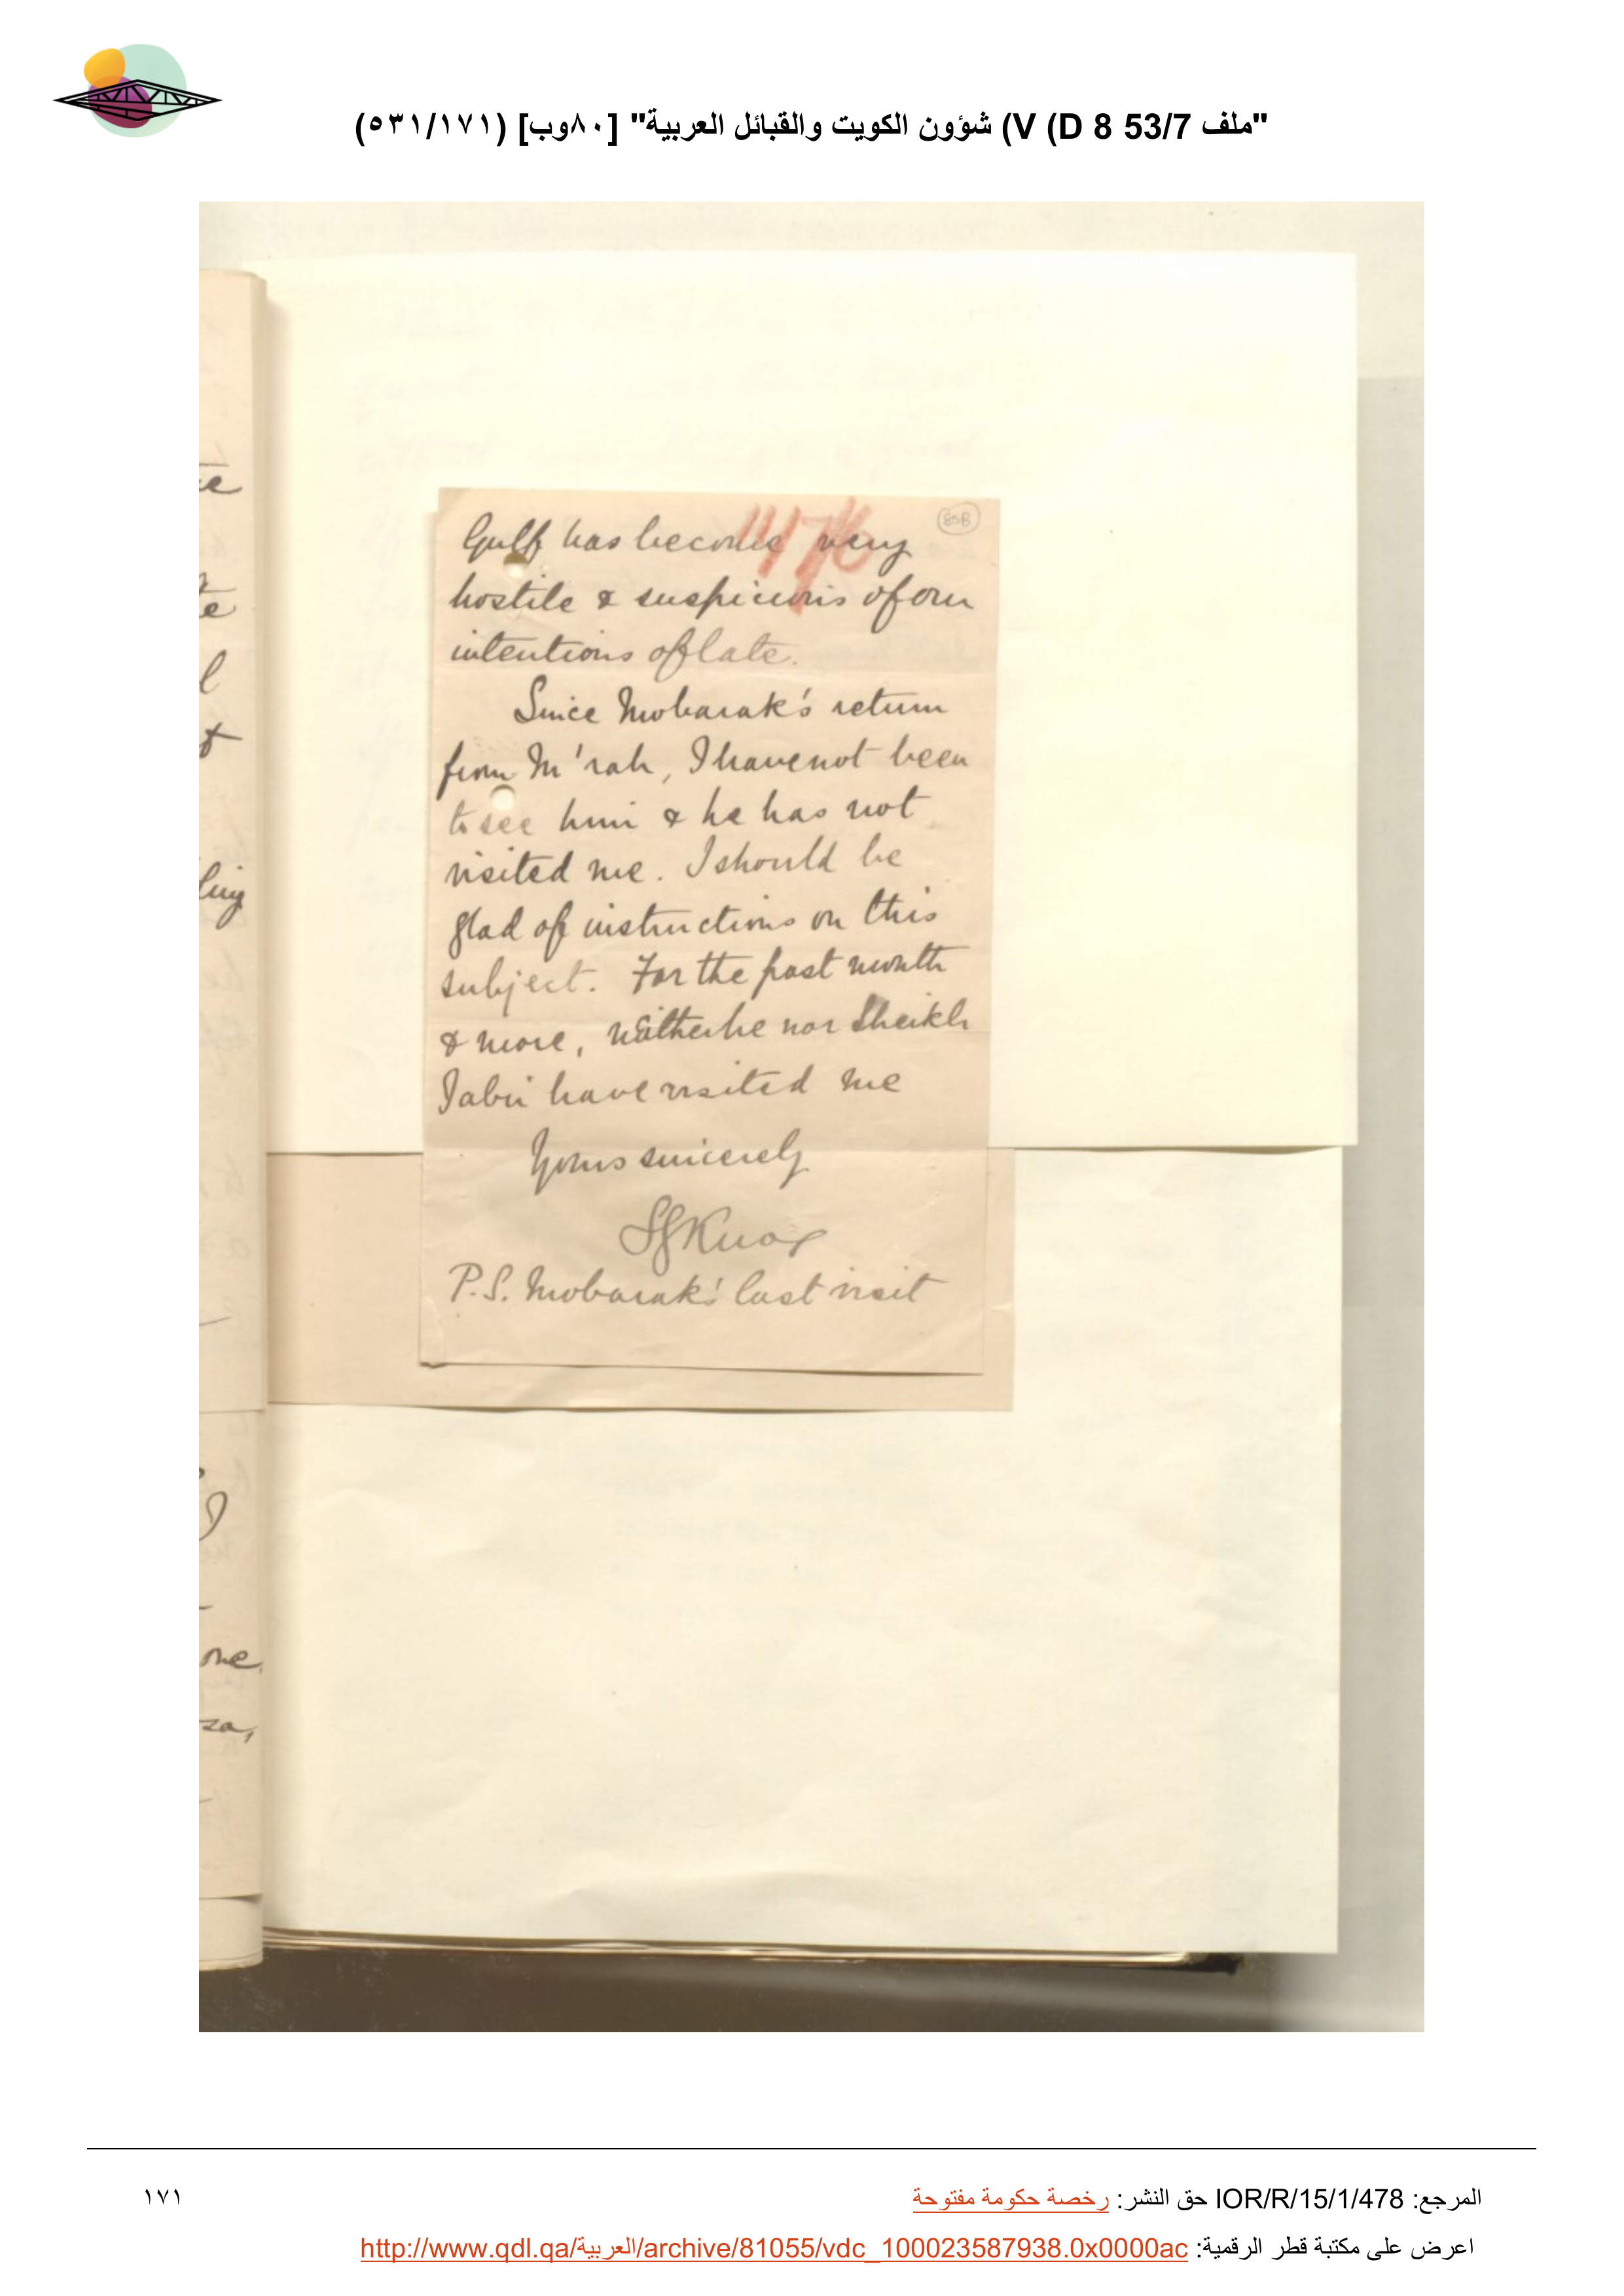 "ملف 53/7 V (D 8) شؤون الكويت والقبائل العربية" [٨٠وب] (٥٣١/١٧١)
80B
Gulf has become very
hostile & suspicious of our
intentions of late.
Since Mobarak's return
from M'rah, I have not been
to see him & he has not
visited me. I should be
glad of instructions on this
subject. For the past month
& more, neither he nor Sheikh
Jabir have visited me
Yours sincerely
SGKnox
P.S. Mobarak's last visit
te
l
t
ling
me
المرجع: IOR/R/15/1/478 حق النشر: رخصة حكومة مفتوحة
١٧١
اعرض على مكتبة قطر الرقمية: http://www.qdl.qa/العربية/archive/81055/vdc_100023587938.0x0000ac